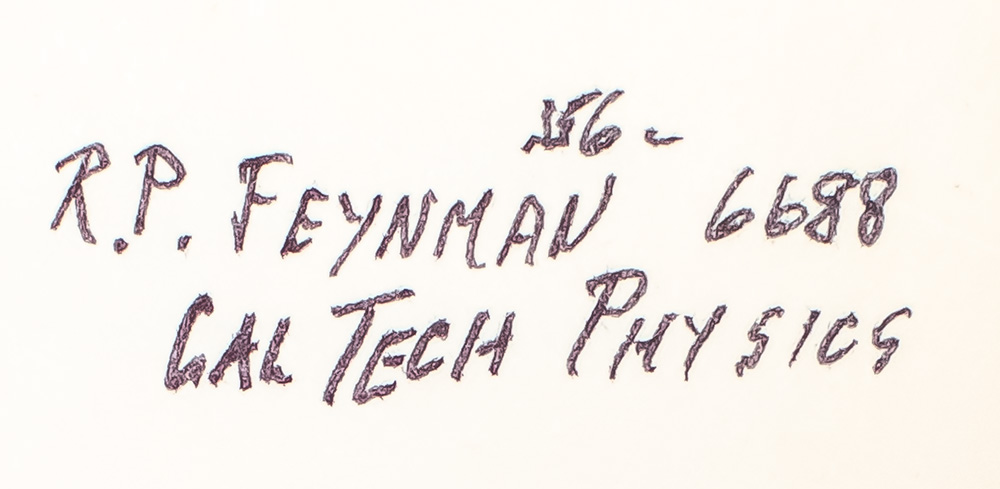 356-
R.P. FEYNMAN 6688
CAL TECH PHYSICS